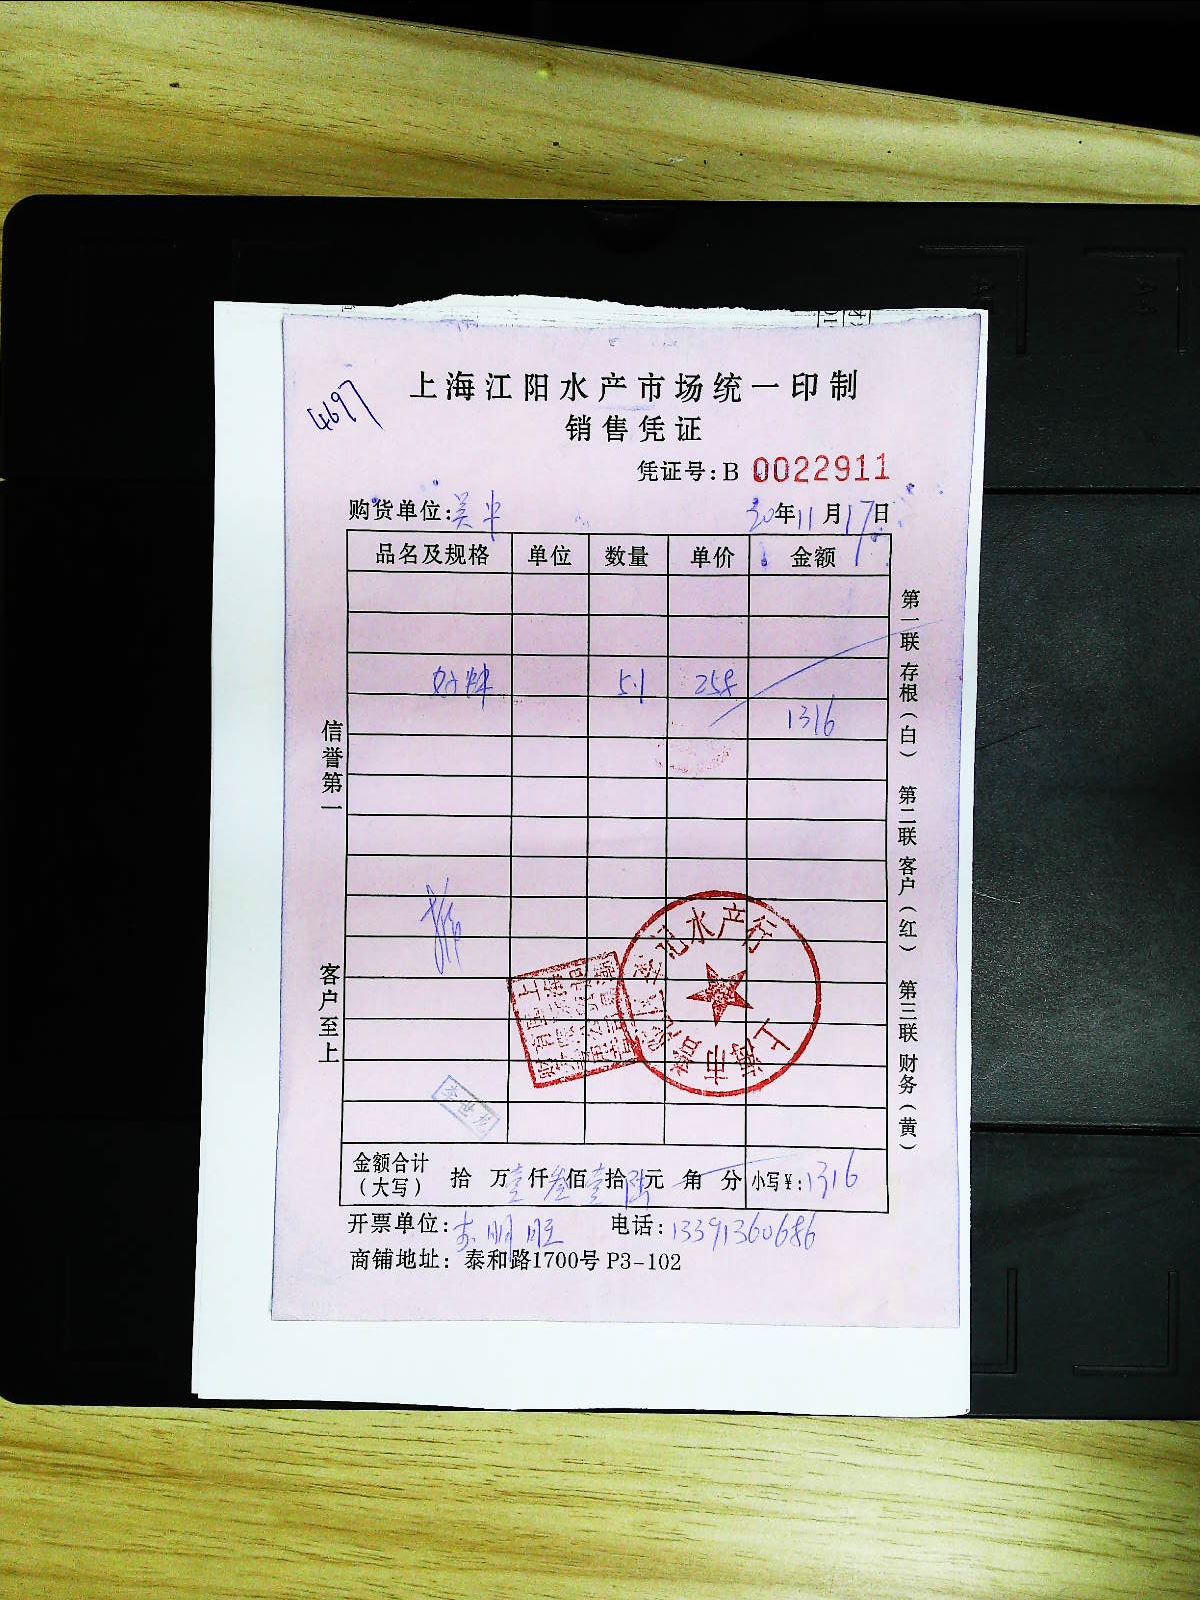 4697
上海江阳水产市场统一印制
销售凭证
凭证号:B 0022911
购货单位:吴
20年11月17日
品名及规格 单位 数量 单价 金额
5.1 258
1316
信誉第一 客户至上
第一联 存根(白) 第二联 客户(红) 第三联 财务(黄)
记水产行
上海市
李世龙
金额合计(大写) 拾 万壹仟叁佰壹拾陆元 角 分 小写¥:1316
开票单位:李明旺 电话:13391360686
商铺地址: 泰和路1700号 P3-102